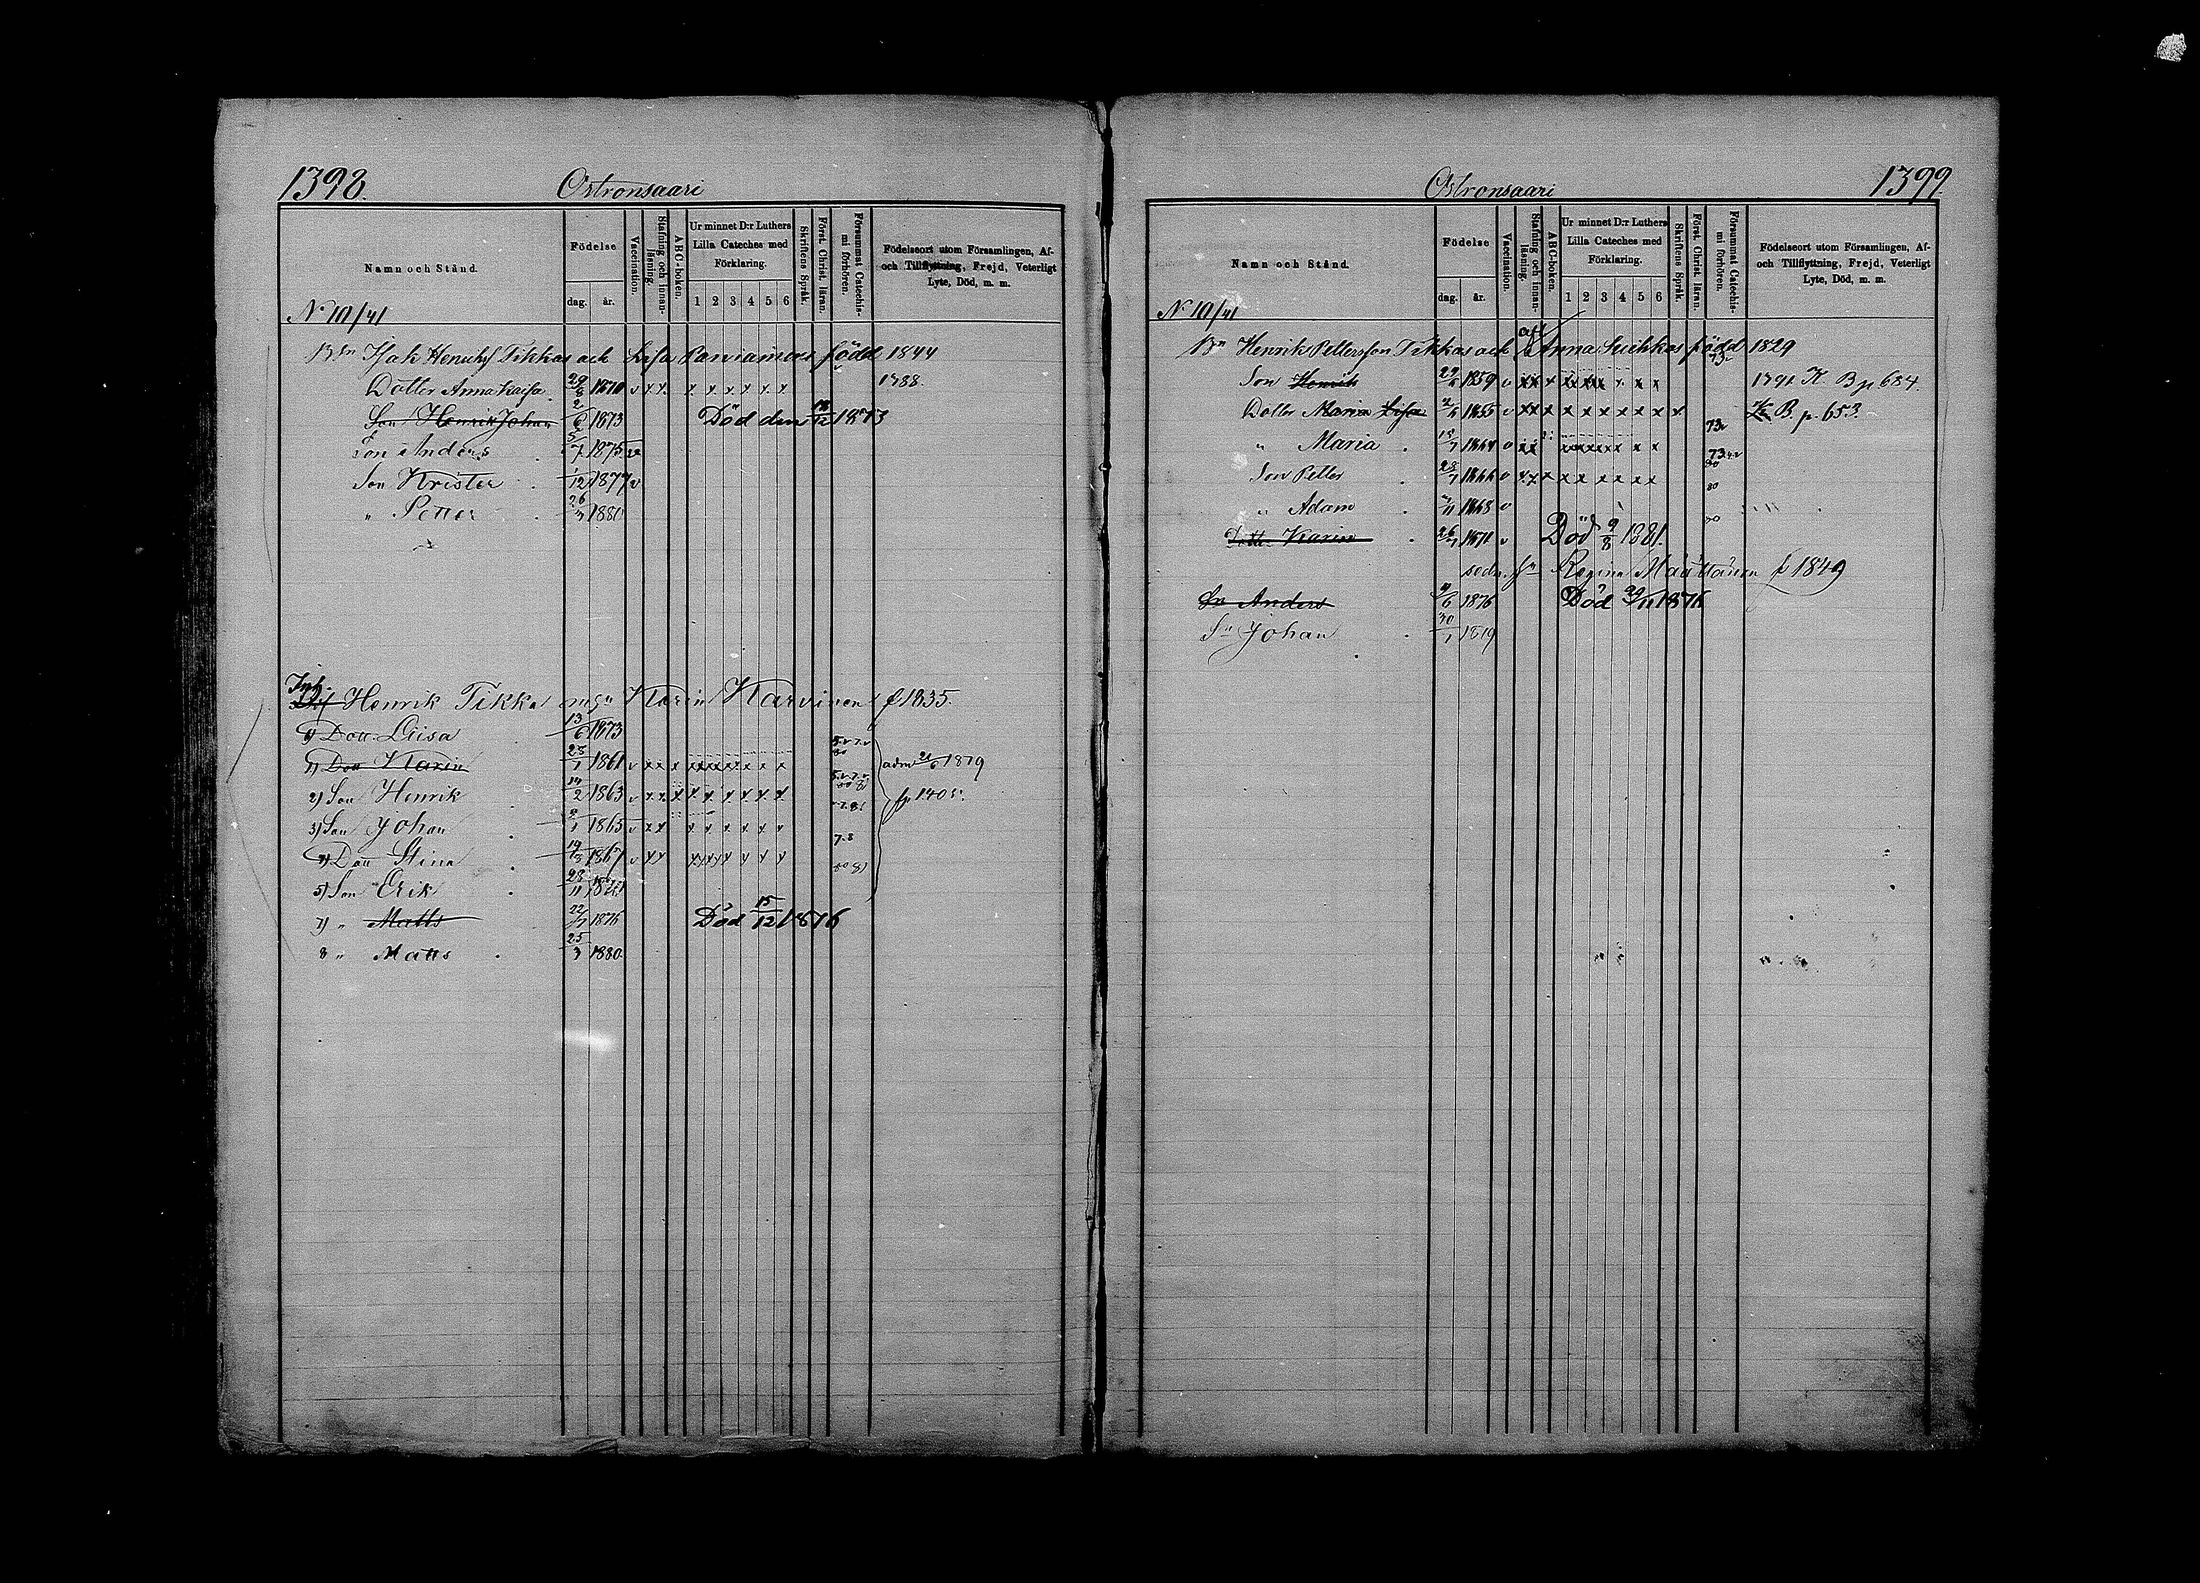 1398.
Ostronsaari
Namn och Stånd.
Födelse
dag. år.
Vaccination.
Stafning och innanläsning.
ABC-boken.
Ur minnet D:r Luthers Lilla Cateches med Förklaring.
1 2 3 4 5 6
Skriftens Språk.
Först. Christ. läran.
Försummat Catechismi förhören.
Födelseort utom Församlingen, Af- och Tillflyttning, Frejd, Veterligt Lyte, Död, m. m.
No 10/41
Henrichs Tikkas och Lisa född 1844
Dotter Anna Kaisa 29/8 1870 v x x x x x x x x 1388.
Son Henrik Johan 1873 Död den 1873
Son Anders 5/7 1875
Son Krister 1/12 1877 v
" Petter 26/3 1880
Inh.
Henrik Tikka Karin Karvinen f 1835.
6) Dott. Liisa 13/6 1873
1) Dott Karin 23/1 1861 v x x x x x x x x x adm 1879
2) Son Henrik 14/2 1863 v x x x x x x x x x fp 1405.
3) Son Johan 1865 v x x x x x x x x
4) Dott Stina 19/3 1867 v x x x x x x x x
5) Son Erik 28/11
7) " Matts 22/7 1876 Död 15/12 1876
8 " Matts 25/3 1880
1399.
Ostronsaari
Namn och Stånd.
Födelse
dag. år.
Vaccination.
Stafning och innanläsning.
ABC-boken.
Ur minnet D:r Luthers Lilla Cateches med Förklaring.
1 2 3 4 5 6
Skriftens Språk.
Först. Christ. läran.
Försummat Catechismi förhören.
Födelseort utom Församlingen, Af- och Tillflyttning, Frejd, Veterligt Lyte, Död, m. m.
No 10/41
Henrik Pettersson Tikkas och Anna född 1829
Son Henrik 1859 v x x x x x x x x x K. B p 684.
Dotter Maria Lisa 1855 v x x x x x x x x x x B. p. 653.
" Maria 1864 v x x x x x x x x
Son Petter 1866 v x x x x x x x x x
" Adam 1868 v
Dotter Karin 26/7 1871 v Död 9/8 1881.
Regina Määttänen f 1849
Sn Anders 1876 Död 1876
Sn Johan 30/1 1879